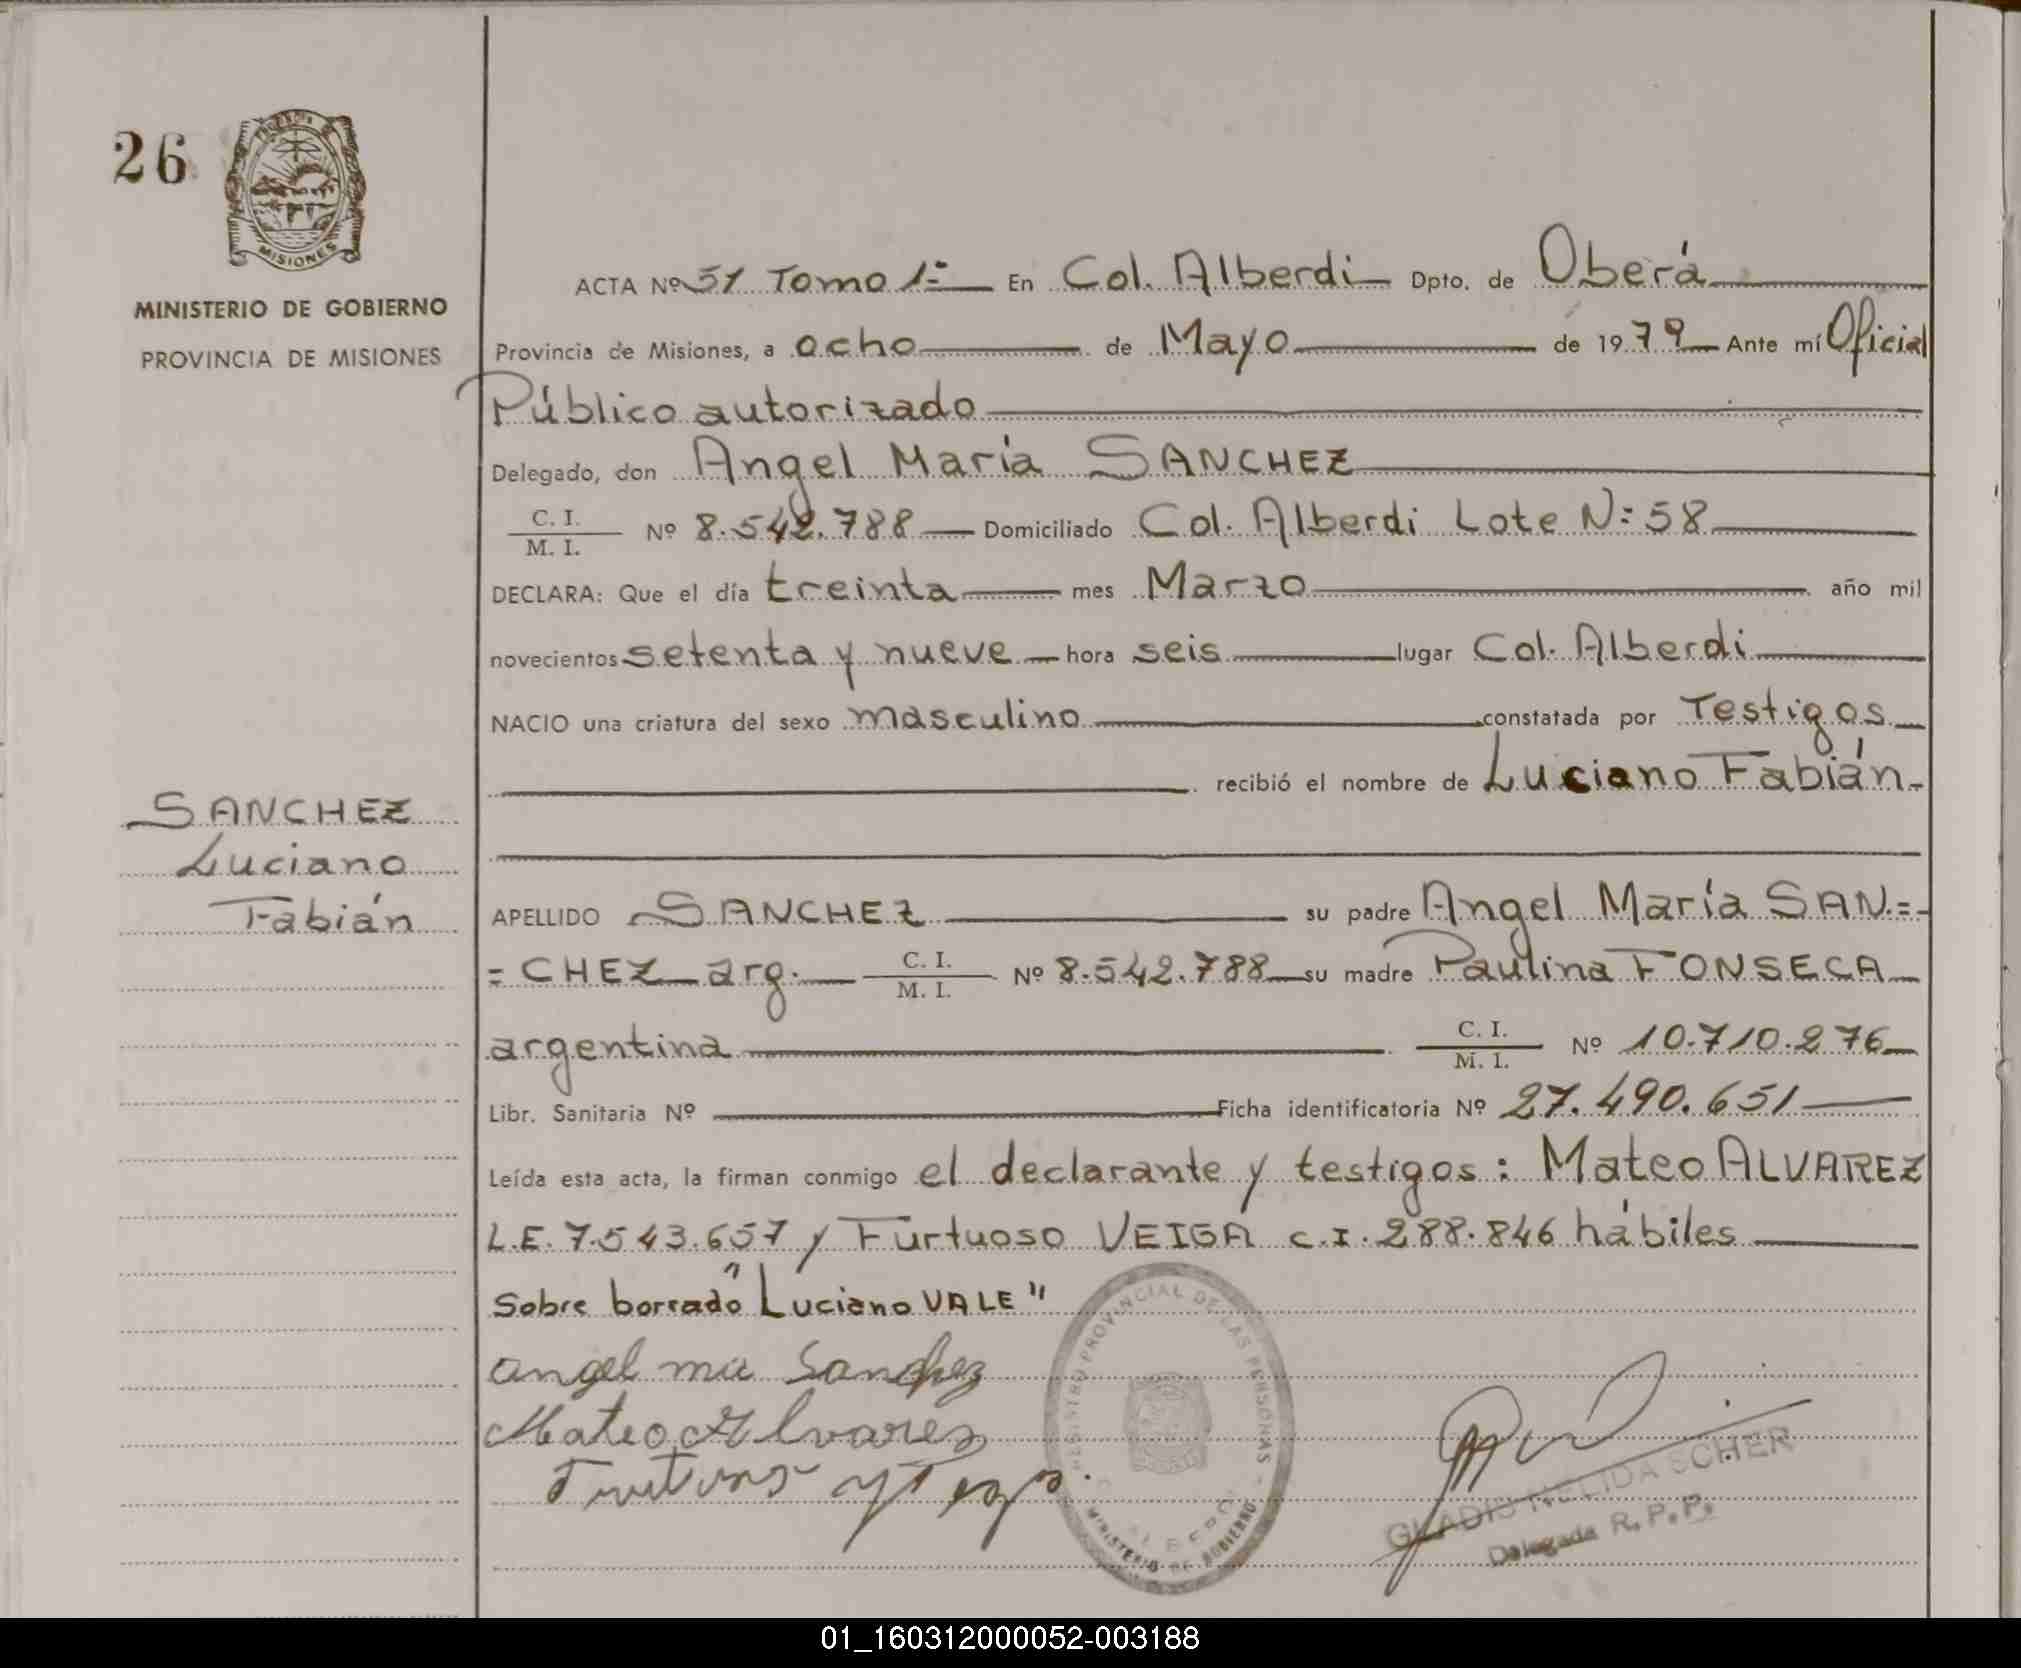 26
MISIONES
MINISTERIO DE GOBIERNO
PROVINCIA DE MISIONES
ACTA Nº 51 Tomo 1º En Col. Alberdi Dpto. de Oberá
Provincia de Misiones, a ocho de Mayo de 1979 Ante mí Oficial
Público autorizado
Delegado, don Angel María SANCHEZ
C. I.
M. I.
Nº 8.542.788 Domiciliado Col. Alberdi Lote Nº 58
DECLARA: Que el día treinta mes Marzo año mil
novecientos setenta y nueve hora seis lugar Col. Alberdi
NACIO una criatura del sexo masculino constatada por Testigos
recibió el nombre de Luciano Fabián.
SANCHEZ
Luciano
Fabián
APELLIDO SANCHEZ su padre Angel María SAN=
=CHEZ arg. C. I. M. I. Nº 8.542.788 su madre Paulina FONSECA
argentina C. I. M. I. Nº 10.710.276
Libr. Sanitaria Nº Ficha identificatoria Nº 27.490.651
Leída esta acta, la firman conmigo el declarante y testigos: Mateo ALVAREZ
L.E. 7.543.657 y Furtuoso VEIGA C.I. 288.846 hábiles
Sobre borrado "Luciano VALE"
angel ma Sanchez
Mateo Alvares
REGISTRO PROVINCIAL DE LAS PERSONAS
MINISTERIO DE GOBIERNO
GLADIS NELIDA SCHER
Delegada R.P.P.
01_160312000052-003188